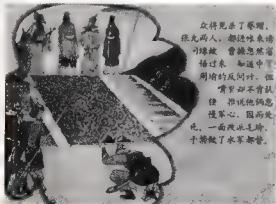 众将见杀了蔡瑁、
张允两人，都进帐来请
问缘故。曹操忽然省
悟过来，知道中了
周瑜的反间计，但
嘴里却不肯认
推说他俩怠
慢军心，因而处
死。一面改派毛玠、
于禁做了水军都督。